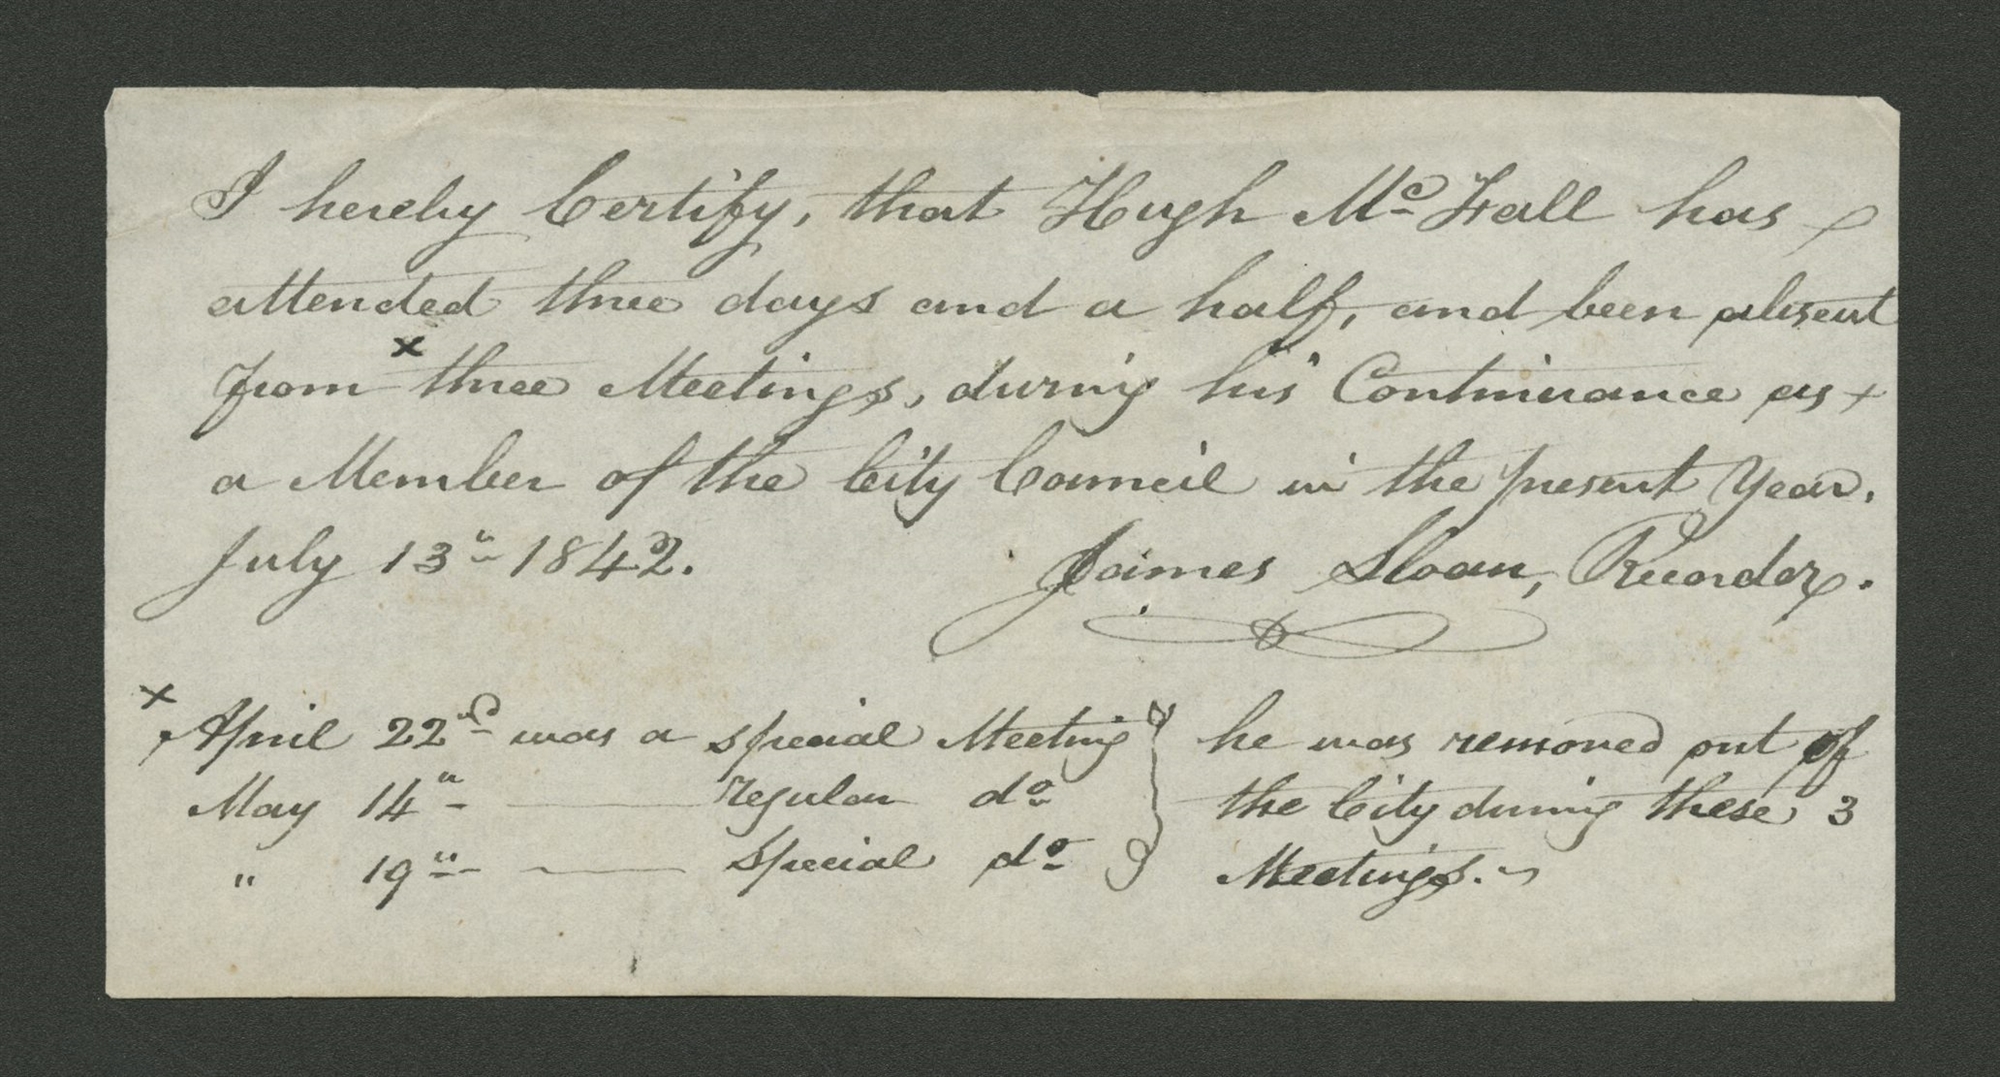 I hereby Certify, that Hugh Mc. Fall has
attended three days and a half, and been absent
from × three Meetings, during his Continuance as +
a Member of the City Council in the present Year.
July 13th 1842.
James Sloan, Recorder.
× April 22nd was a special Meeting } he was removed out of
May 14th — regular do } the City during these 3
" 19th — special do } Meetings.